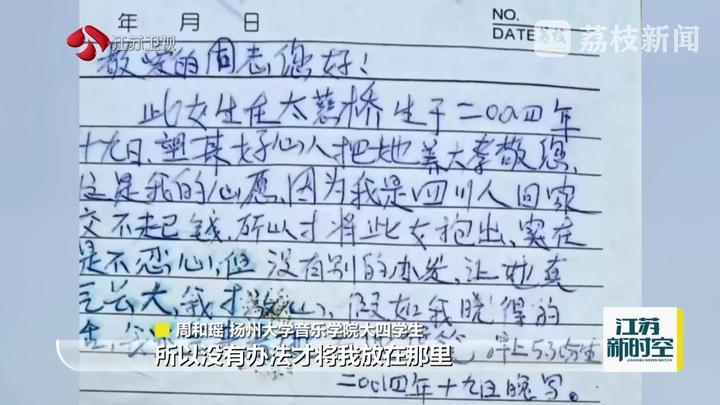 江苏卫视
荔枝新闻
年 月 日
NO.
DATE
敬爱的同志,您好!
此女生在太慈桥生于二00四年
十九日,望某好心人把她养大孝敬您,
这是我的心愿,因为我是四川人回家
交不起钱,所以才将此女抱出,实在
是不忍心,但没有别的办法,让她真
长大,我才 心,假如我晓得的
晚上5.30分生
二00四年十九日晚写。
周和瑶 扬州大学音乐学院大四学生
所以没有办法才将我放在那里
江苏
新时空
JIANGSU NEWS WATCH